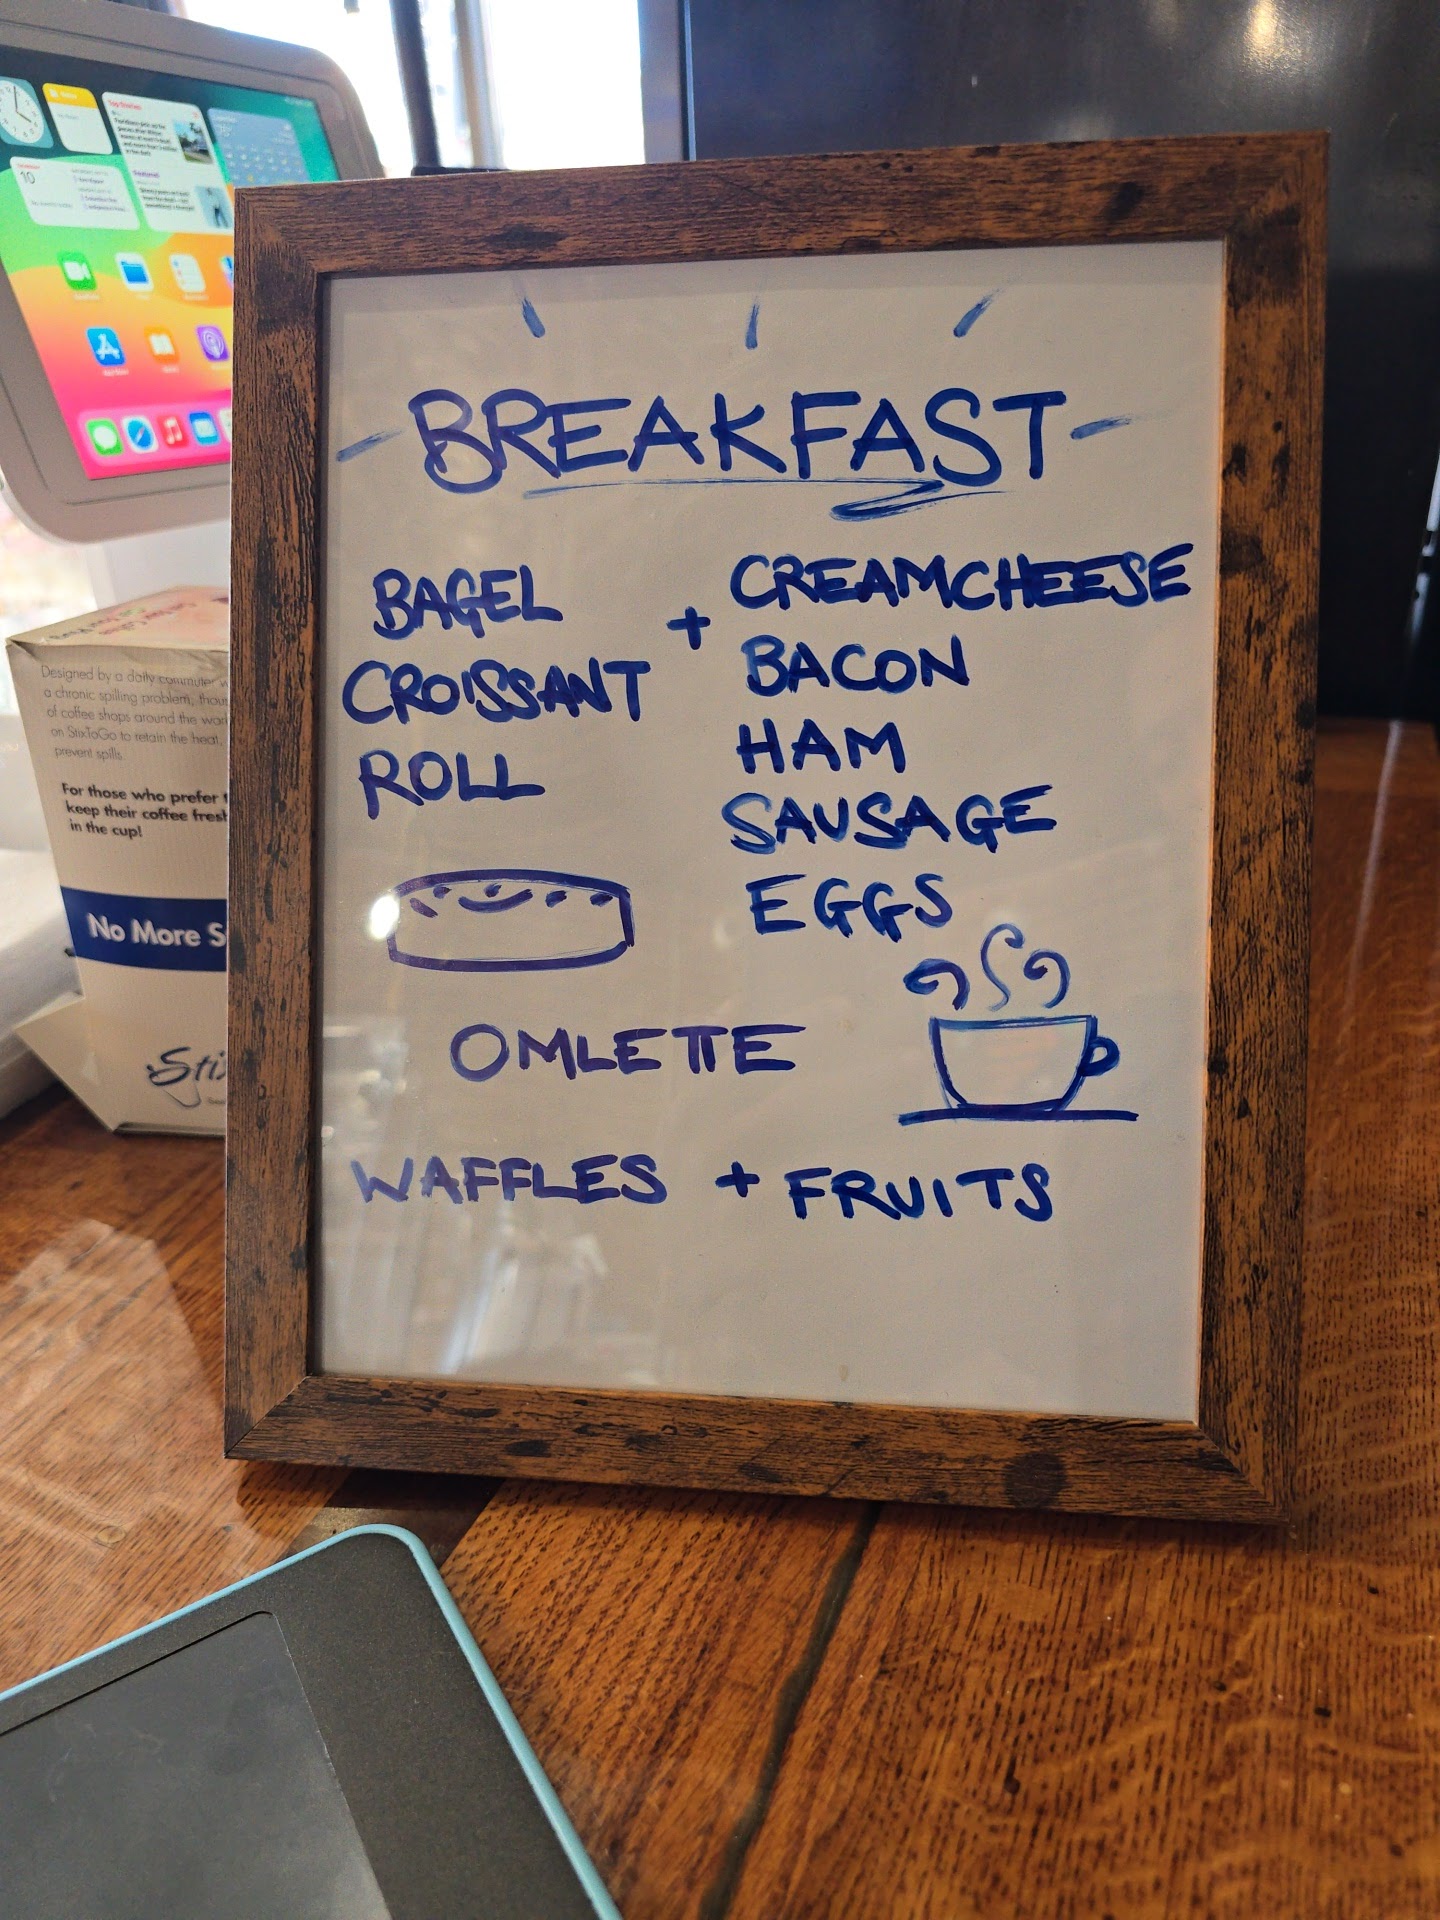 BREAKFAST
BAGEL + CREAMCHEESE
CROISSANT BACON
ROLL HAM
SAUSAGE
EGGS
OMLETTE
WAFFLES + FRUITS
Designed by a daily commuter
a chronic spilling problem,
of coffee shops around the
on StixToGo to retain the heat,
prevent spills.
For those who prefer
keep their coffee fresh
in the cup!
No More S
Stix
10